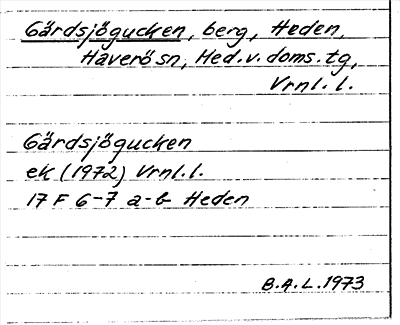 Gärdsjögucken, berg, Heden,
Haverö sn, Hed.v. doms. tg,
Vrnl. l.
Gärdsjögucken
ek (1972) Vrnl. l.
17 F 6-7 a-b Heden
B.A.L. 1973